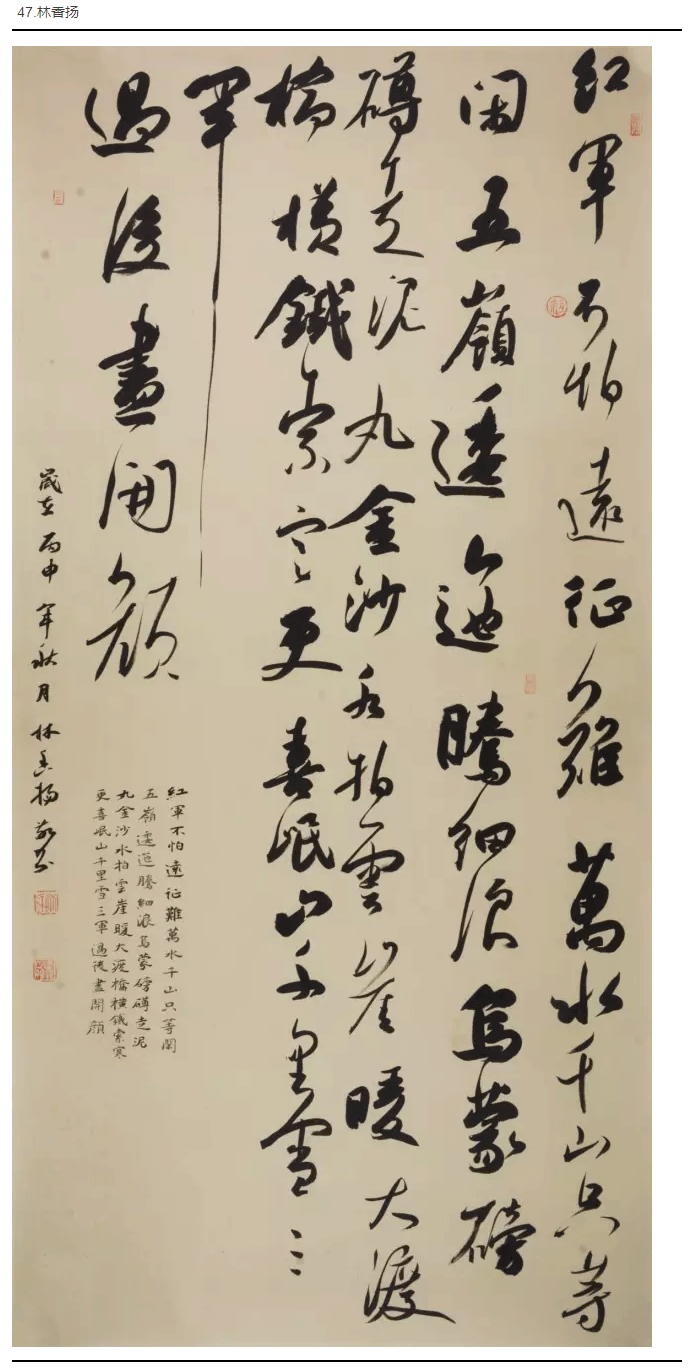 47.林香扬
紅軍不怕遠征難萬水千山只等
閑五嶺逶迤騰細浪烏蒙磅
礴走泥丸金沙水拍雲崖暖大渡
橋橫鐵索寒更喜岷山千里雪三
軍
過後盡開顏
紅軍不怕遠征難萬水千山只等閑
五嶺逶迤騰細浪烏蒙磅礴走泥
丸金沙水拍雲崖暖大渡橋橫鐵索寒
更喜岷山千里雪三軍過後盡開顏
歲在丙申年秋月林香揚敬書